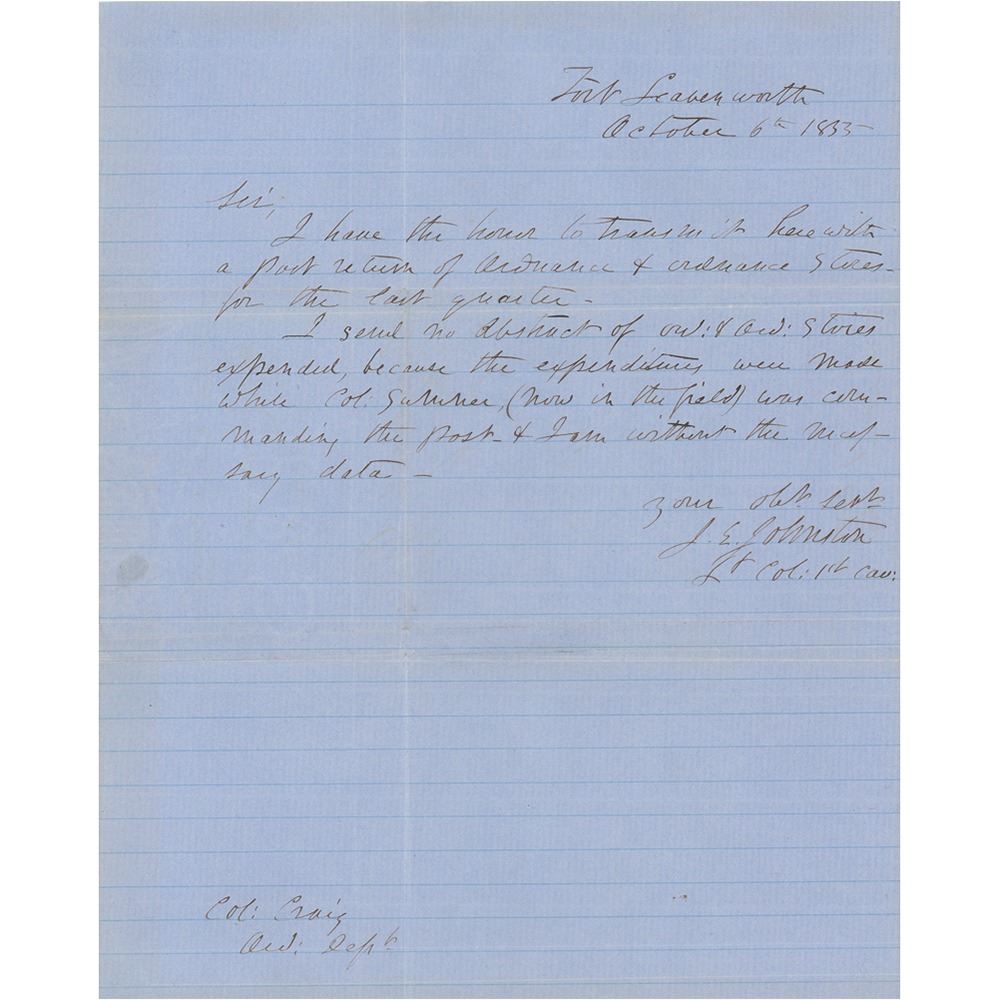 Fort Leavenworth
October 6th 1855
Sir;
I have the honor to transmit herewith
a post return of Ordnance & ordnance stores-
for the last quarter -
I send no abstract of ord: & Ord: stores
expended, because the expenditures were made
while Col: Sumner, (now in the field) was com-
manding the post - & I am without the neces-
sary data -
Your obt. servt
J. E. Johnston
Lt Col: 1st Cav:
Col: Craig
Ord: Dept